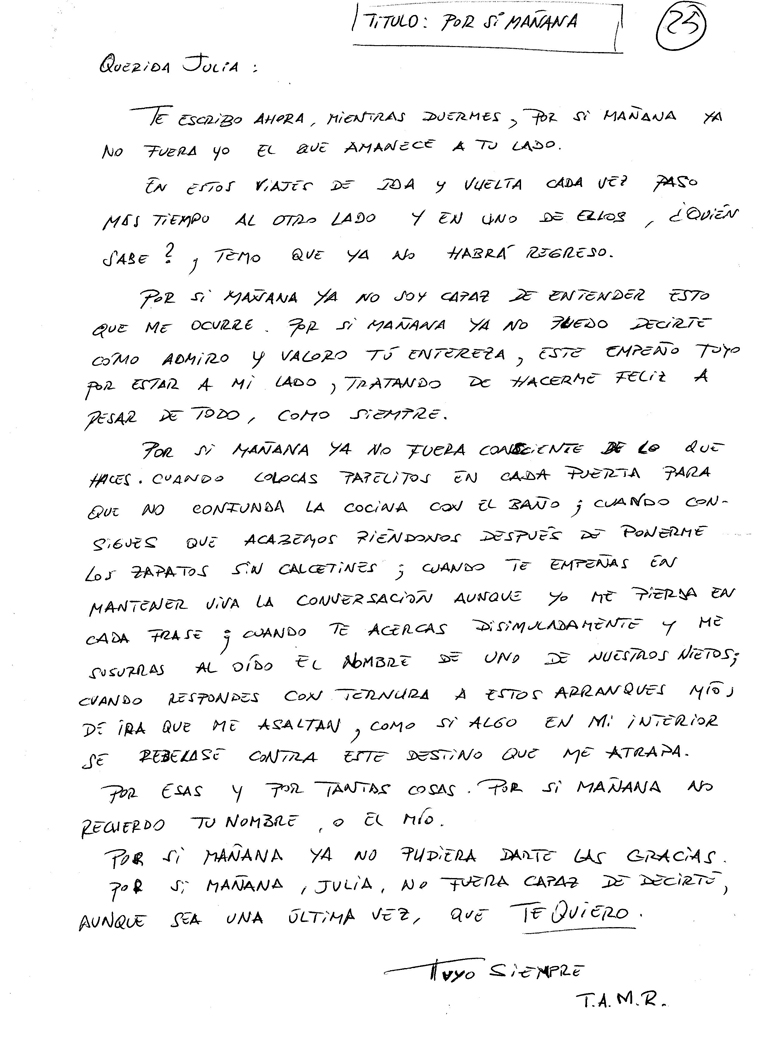 TITULO: POR SI MAÑANA
25
QUERIDA JULIA :
TE ESCRIBO AHORA, MIENTRAS DUERMES, POR SI MAÑANA YA
NO FUERA YO EL QUE AMANECE A TU LADO.
EN ESTOS VIAJES DE IDA Y VUELTA CADA VEZ PASO
MÁS TIEMPO AL OTRO LADO Y EN UNO DE ELLOS, ¿QUIÉN
SABE?, TEMO QUE YA NO HABRÁ REGRESO.
POR SI MAÑANA YA NO SOY CAPAZ DE ENTENDER ESTO
QUE ME OCURRE. POR SI MAÑANA YA NO PUEDO DECIRTE
COMO ADMIRO Y VALORO TÚ ENTEREZA, ESTE EMPEÑO TUYO
POR ESTAR A MI LADO, TRATANDO DE HACERME FELIZ A
PESAR DE TODO, COMO SIEMPRE.
POR SI MAÑANA YA NO FUERA CONSCIENTE DE LO QUE
HACES. CUANDO COLOCAS PAPELITOS EN CADA PUERTA PARA
QUE NO CONFUNDA LA COCINA CON EL BAÑO; CUANDO CON-
SIGUES QUE ACABEMOS RIÉNDONOS DESPUÉS DE PONERME
LOS ZAPATOS SIN CALCETINES; CUANDO TE EMPEÑAS EN
MANTENER VIVA LA CONVERSACIÓN AUNQUE YO ME PIERDA EN
CADA FRASE; CUANDO TE ACERCAS DISIMULADAMENTE Y ME
SUSURRAS AL OÍDO EL NOMBRE DE UNO DE NUESTROS NIETOS;
CUANDO RESPONDES CON TERNURA A ESTOS ARRANQUES MÍOS
DE IRA QUE ME ASALTAN, COMO SI ALGO EN MI INTERIOR
SE REBELASE CONTRA ESTE DESTINO QUE ME ATRAPA.
POR ESAS Y POR TANTAS COSAS. POR SI MAÑANA NO
RECUERDO TU NOMBRE, O EL MÍO.
POR SI MAÑANA YA NO PUDIERA DARTE LAS GRACIAS.
POR SI MAÑANA, JULIA, NO FUERA CAPAZ DE DECIRTE,
AUNQUE SEA UNA ÚLTIMA VEZ, QUE TE QUIERO.
TUYO SIEMPRE
T.A.M.R.